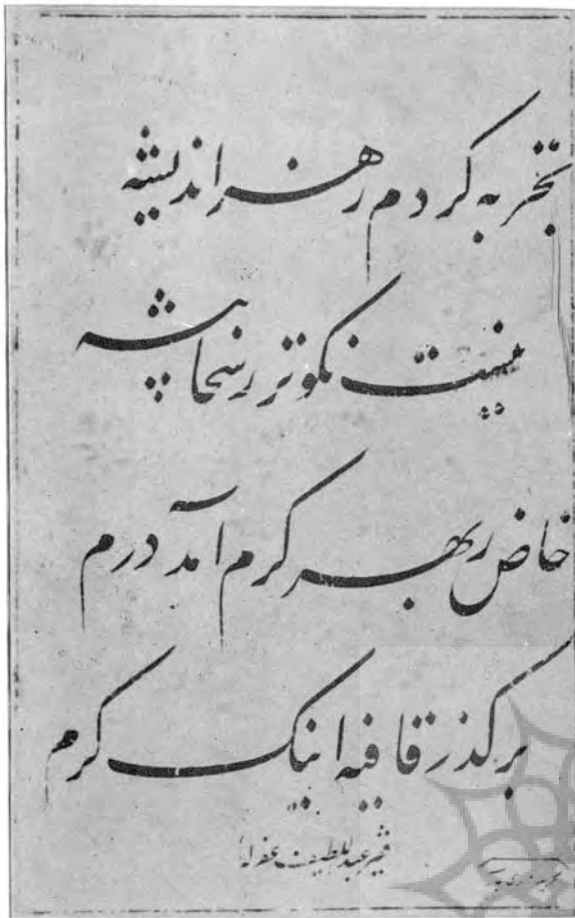 تجربه کردم ز هر اندیشه
نیست نکوتر ز سخا پیشه
خاص ز بهر کرم آمد درم
بر گذر قافیه اینک کرم
فقیر عبداللطیف غفرله